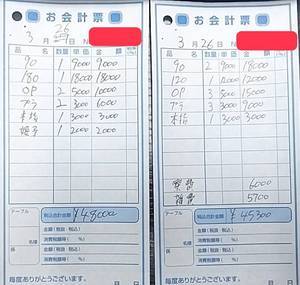 お会計票
3月26
N
品名 数量 単価 金額
90 1 9000 9000
180 1 18000 18000
OP 2 5000 10000
プラ 2 3000 6000
本指 1 3000 3000
1 2000 2000
テーブル
税込合計金額 ¥48000
係
名様
金額(税抜・税込)
消費税額等( %)
金額(税抜・税込)
消費税額等( %)
毎度ありがとうございます。
お会計票
3月26日 N
品名 数量 単価 金額
90 2 9000 18000
120 12000
OP 3 5000 15000
プラ 3 3000 9000
本指 1 3000 3000
6000
5700
テーブル
税込合計金額 ¥45300
係
名様
金額(税抜・税込)
消費税額等( %)
金額(税抜・税込)
消費税額等( %)
毎度ありがとうございます。